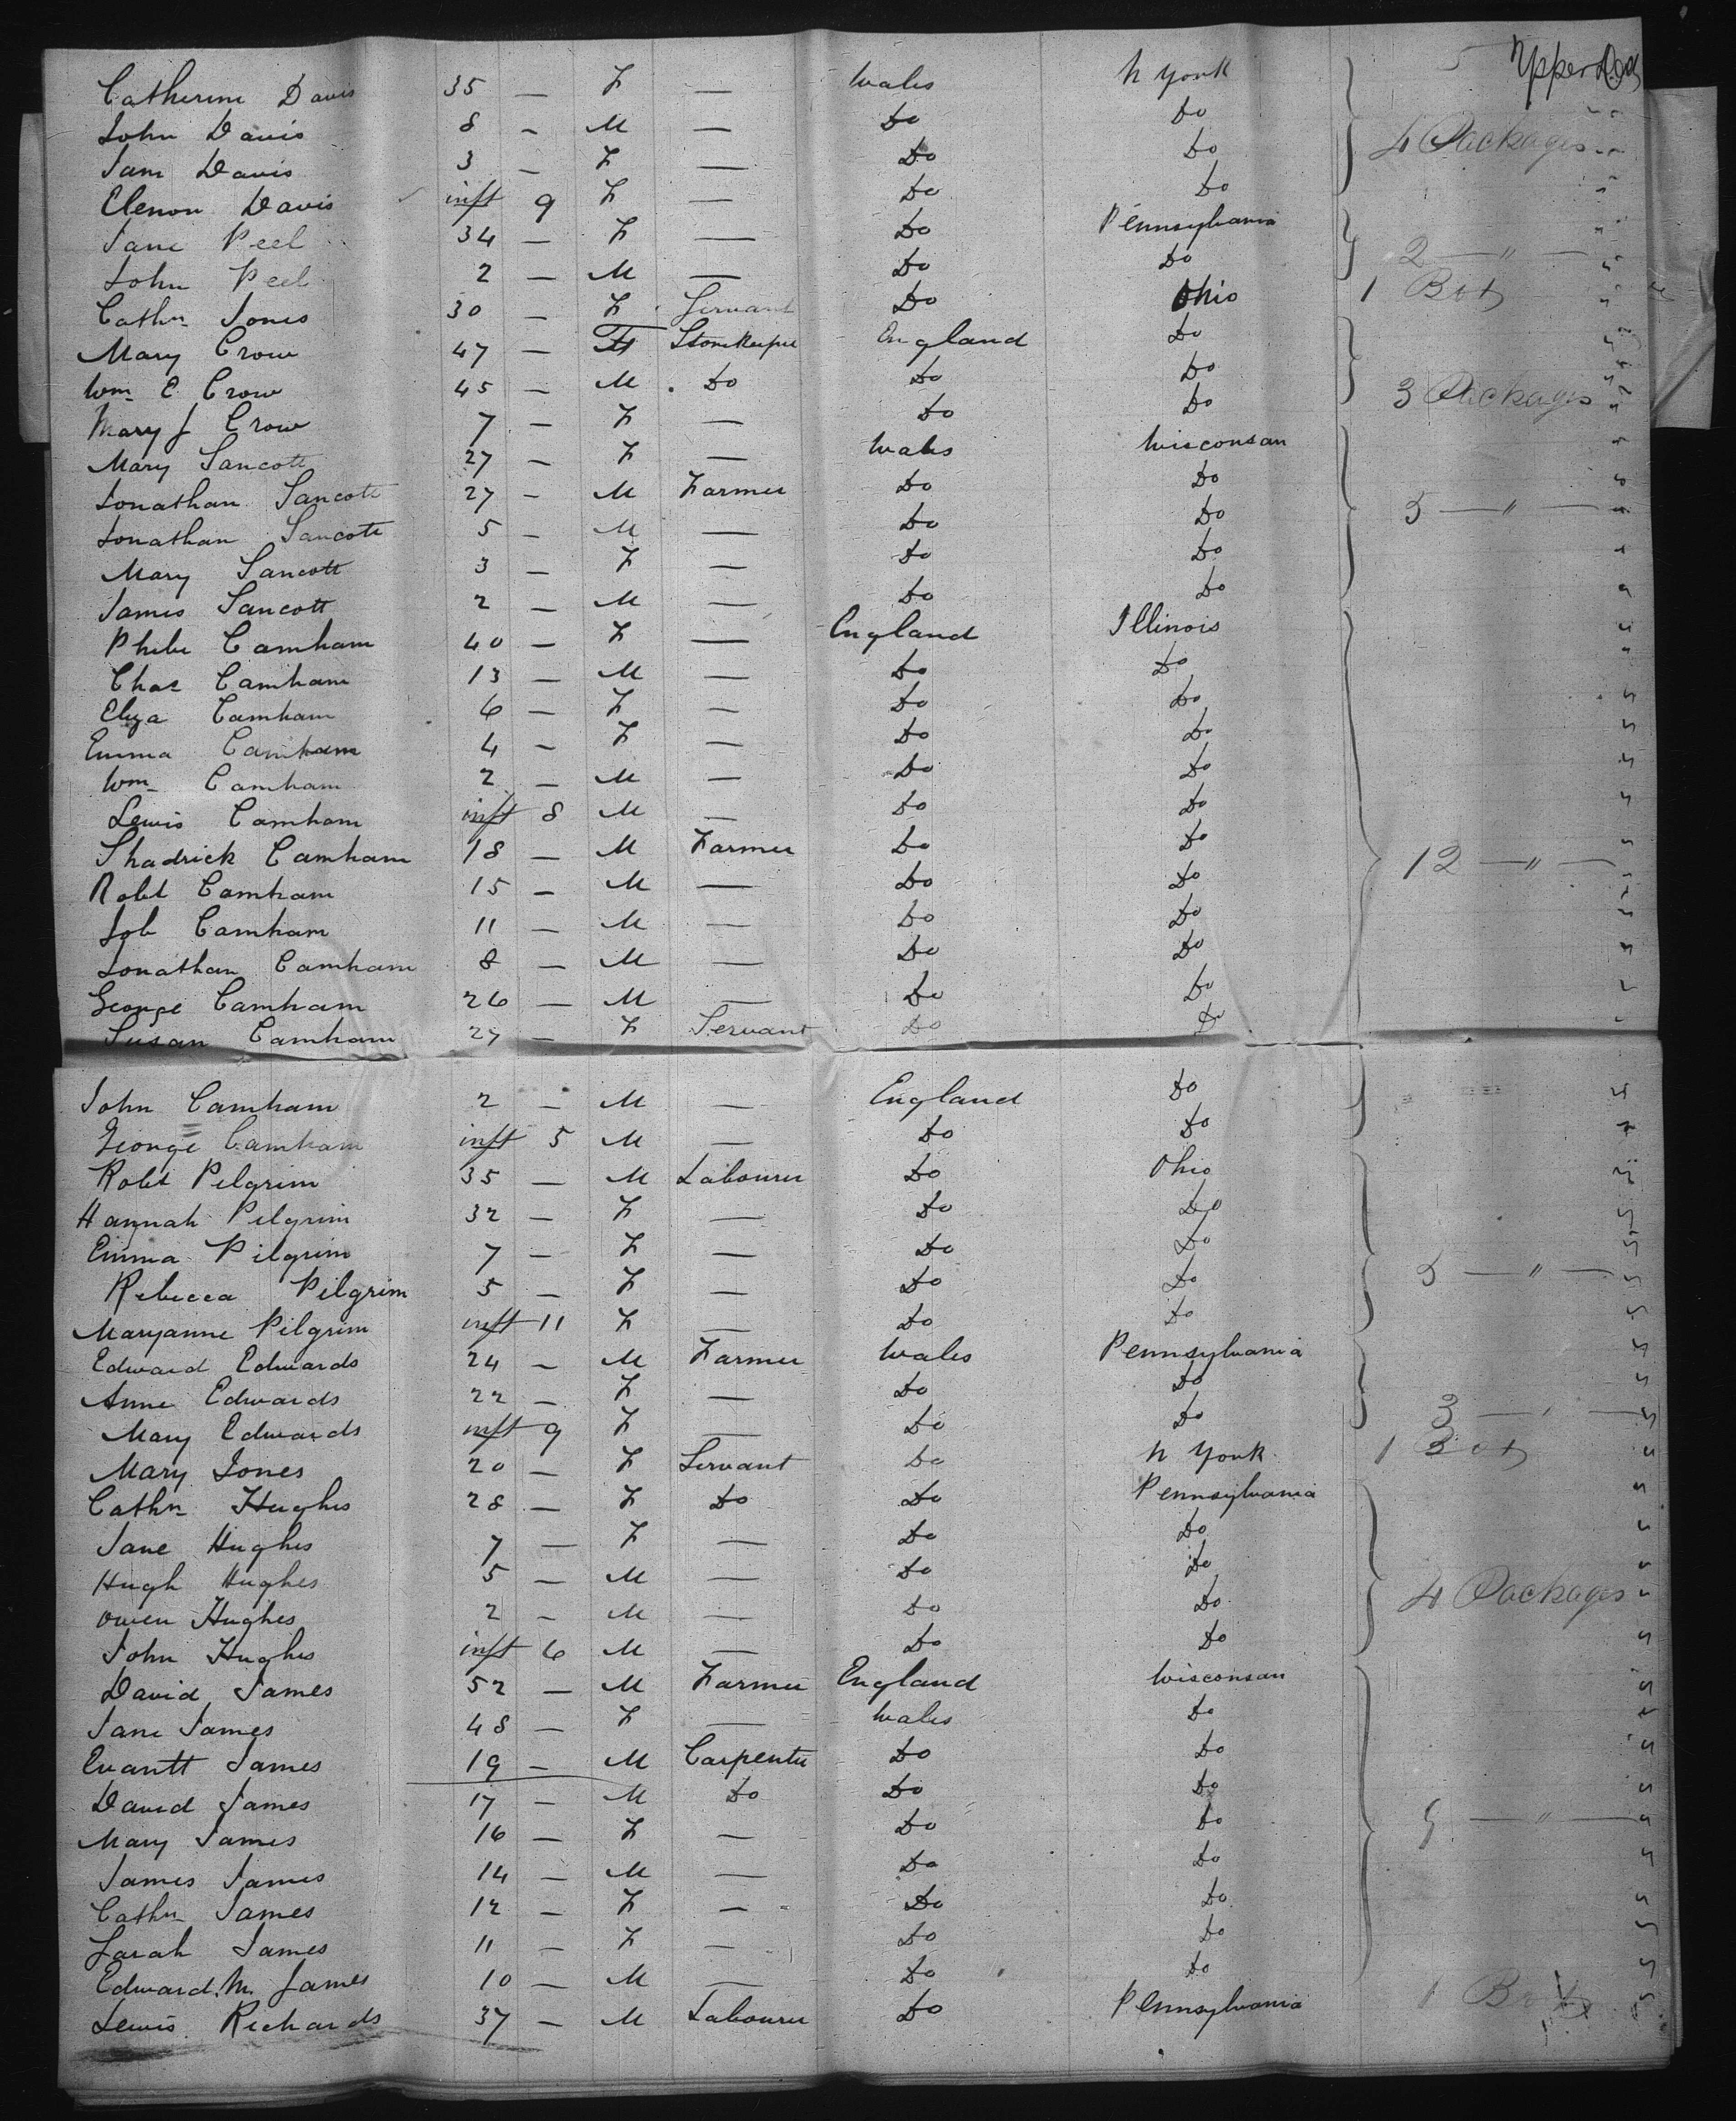 Upper Deck
Catherine Davis 35 — F — Wales N York
John Davis 8 — M — Do Do
Jam Davis 3 — F — Do Do 4 Packages
Elenon Davis inft 9 F — Do Do
Jane Peel 34 — F — Do Pennsylvania
John Peel 2 — M — Do Do 2 — " —
Cathn Jones 30 — F Servant Do Ohio 1 Box
Mary Crow 47 — F Storekeeper England Do
Wm E Crow 45 — M Do Do Do 3 Packages
Mary J Crow 7 — F — Do Do
Mary Sancott 27 — F — Wales Wisconsan
Jonathan Sancott 27 — M Farmer Do Do
Jonathan Sancott 5 — M — Do Do 5 — " —
Mary Sancott 3 — F — Do Do
James Sancott 2 — M — Do Do
Phebe Camham 40 — F — England Illinois
Chas Camham 13 — M — Do Do
Elyza Camham 6 — F — Do Do
Emma Camham 4 — F — Do Do
Wm Camham 2 — M — Do Do
Lewis Camham inft 8 M — Do Do
Shadrick Camham 18 — M Farmer Do Do 12 — " —
Robt Camham 15 — M — Do Do
Job Camham 11 — M — Do Do
Jonathan Camham 8 — M — Do Do
George Camham 26 — M — Do Do
Susan Camham 27 — F Servant Do Do
John Camham 2 — M — England Do
George Camham inft 5 M — Do Do
Robt Pilgrim 35 — M Labourer Do Ohio
Hannah Pilgrim 32 — F — Do Do
Emma Pilgrim 7 — F — Do Do
Rebecca Pilgrim 5 — F — Do Do 5 — " —
Maryanne Pilgrim inft 11 F — Do Do
Edward Edwards 24 — M Farmer Wales Pennsylvania
Anne Edwards 22 — F — Do Do
Mary Edwards inft 9 F — Do Do 3 — " —
Mary Jones 20 — F Servant Do N York 1 Box
Cathn Hughes 28 — F Do Do Pennsylvania
Jane Hughes 7 — F — Do Do
Hugh Hughes 5 — M — Do Do
Owen Hughes 2 — M — Do Do 4 Packages
John Hughes inft 6 M — Do Do
David James 52 — M Farmer England Wisconsan
Jane James 48 — F — Wales Do
Evantt James 19 — M Carpenter Do Do
David James 17 — M Do Do Do
Mary James 16 — F — Do Do 9 — " —
James James 14 — M — Do Do
Cathn James 12 — F — Do Do
Sarah James 11 — F — Do Do
Edward M James 10 — M — Do Do
Lewis Richards 37 — M Labourer Do Pennsylvania 1 Box